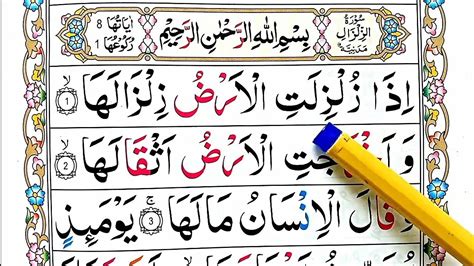 سُوْرَةُ الزِّلْزَالِ مَدَنِيَّةٌ
بِسْمِ اللهِ الرَّحْمٰنِ الرَّحِيْمِ
اٰيَاتُهَا 8 رُكُوْعُهَا 1
اِذَا زُلْزِلَتِ الْاَرْضُ زِلْزَالَهَا ۙ 1
الْاَرْضُ اَثْقَالَهَا ۙ 2
وَقَالَ الْاِنْسَانُ مَالَهَا ۚ 3 يَوْمَئِذٍ